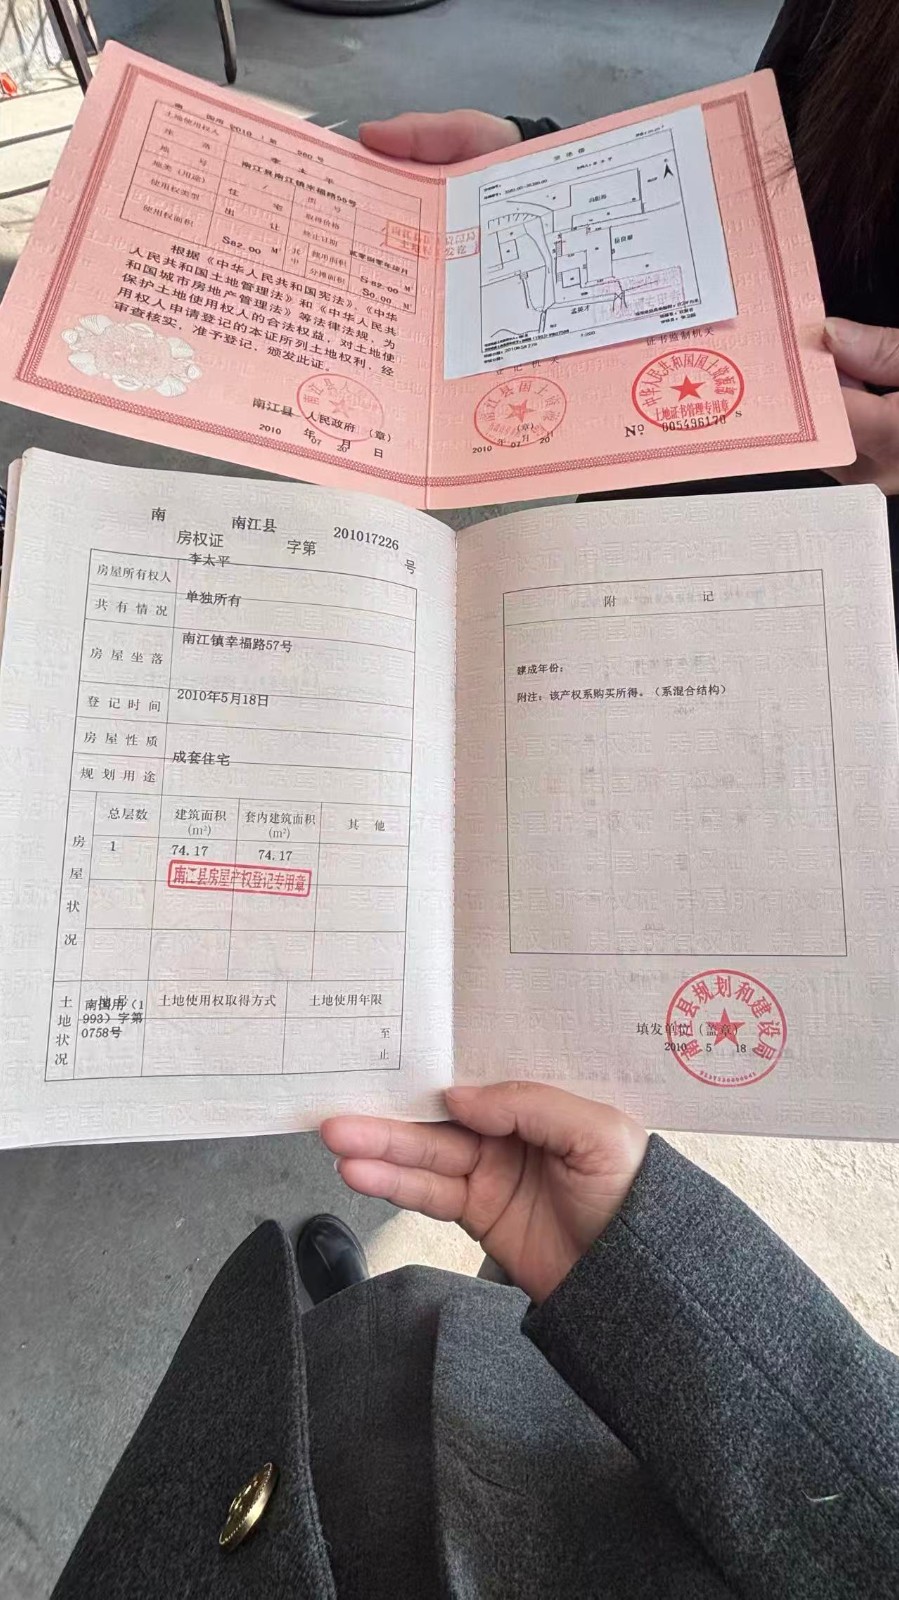 国用 2010 第 560 号
土地使用权人 李太平
座落 南江县南江镇幸福路56号
地号 / 图号
地类（用途） 住宅 取得价格
使用权类型 出让 终止日期
使用权面积 S82.00 M² 其中 独用面积 S82.00 M²
分摊面积 S0.00 M²
根据《中华人民共和国宪法》、《中华
人民共和国土地管理法》和《中华人民共
和国城市房地产管理法》等法律法规，为
保护土地使用权人的合法权益，对土地使
用权人申请登记的本证所列土地权利，经
审查核实，准予登记，颁发此证。
南江县 人民政府（章）
2010 年 07 月 20 日
登记机关
（章）
2010 年 07 月 20 日
证书监制机关
中华人民共和国国土资源部
土地证书管理专用章
Nº 005496170 s
南 南江县
房权证 字第 201017226 号
房屋所有权人 李太平
共有情况 单独所有
房屋坐落 南江镇幸福路57号
登记时间 2010年5月18日
房屋性质
规划用途 成套住宅
房屋状况
总层数 建筑面积(m²) 套内建筑面积(m²) 其他
1 74.17 74.17
南江县房屋产权登记专用章
土地状况
地号 土地使用权取得方式 土地使用年限
南国用（1993）字第0758号
至
止
附记
建成年份：
附注：该产权系购买所得。（系混合结构）
南江县规划和建设局
填发单位（盖章）
2010 5 18